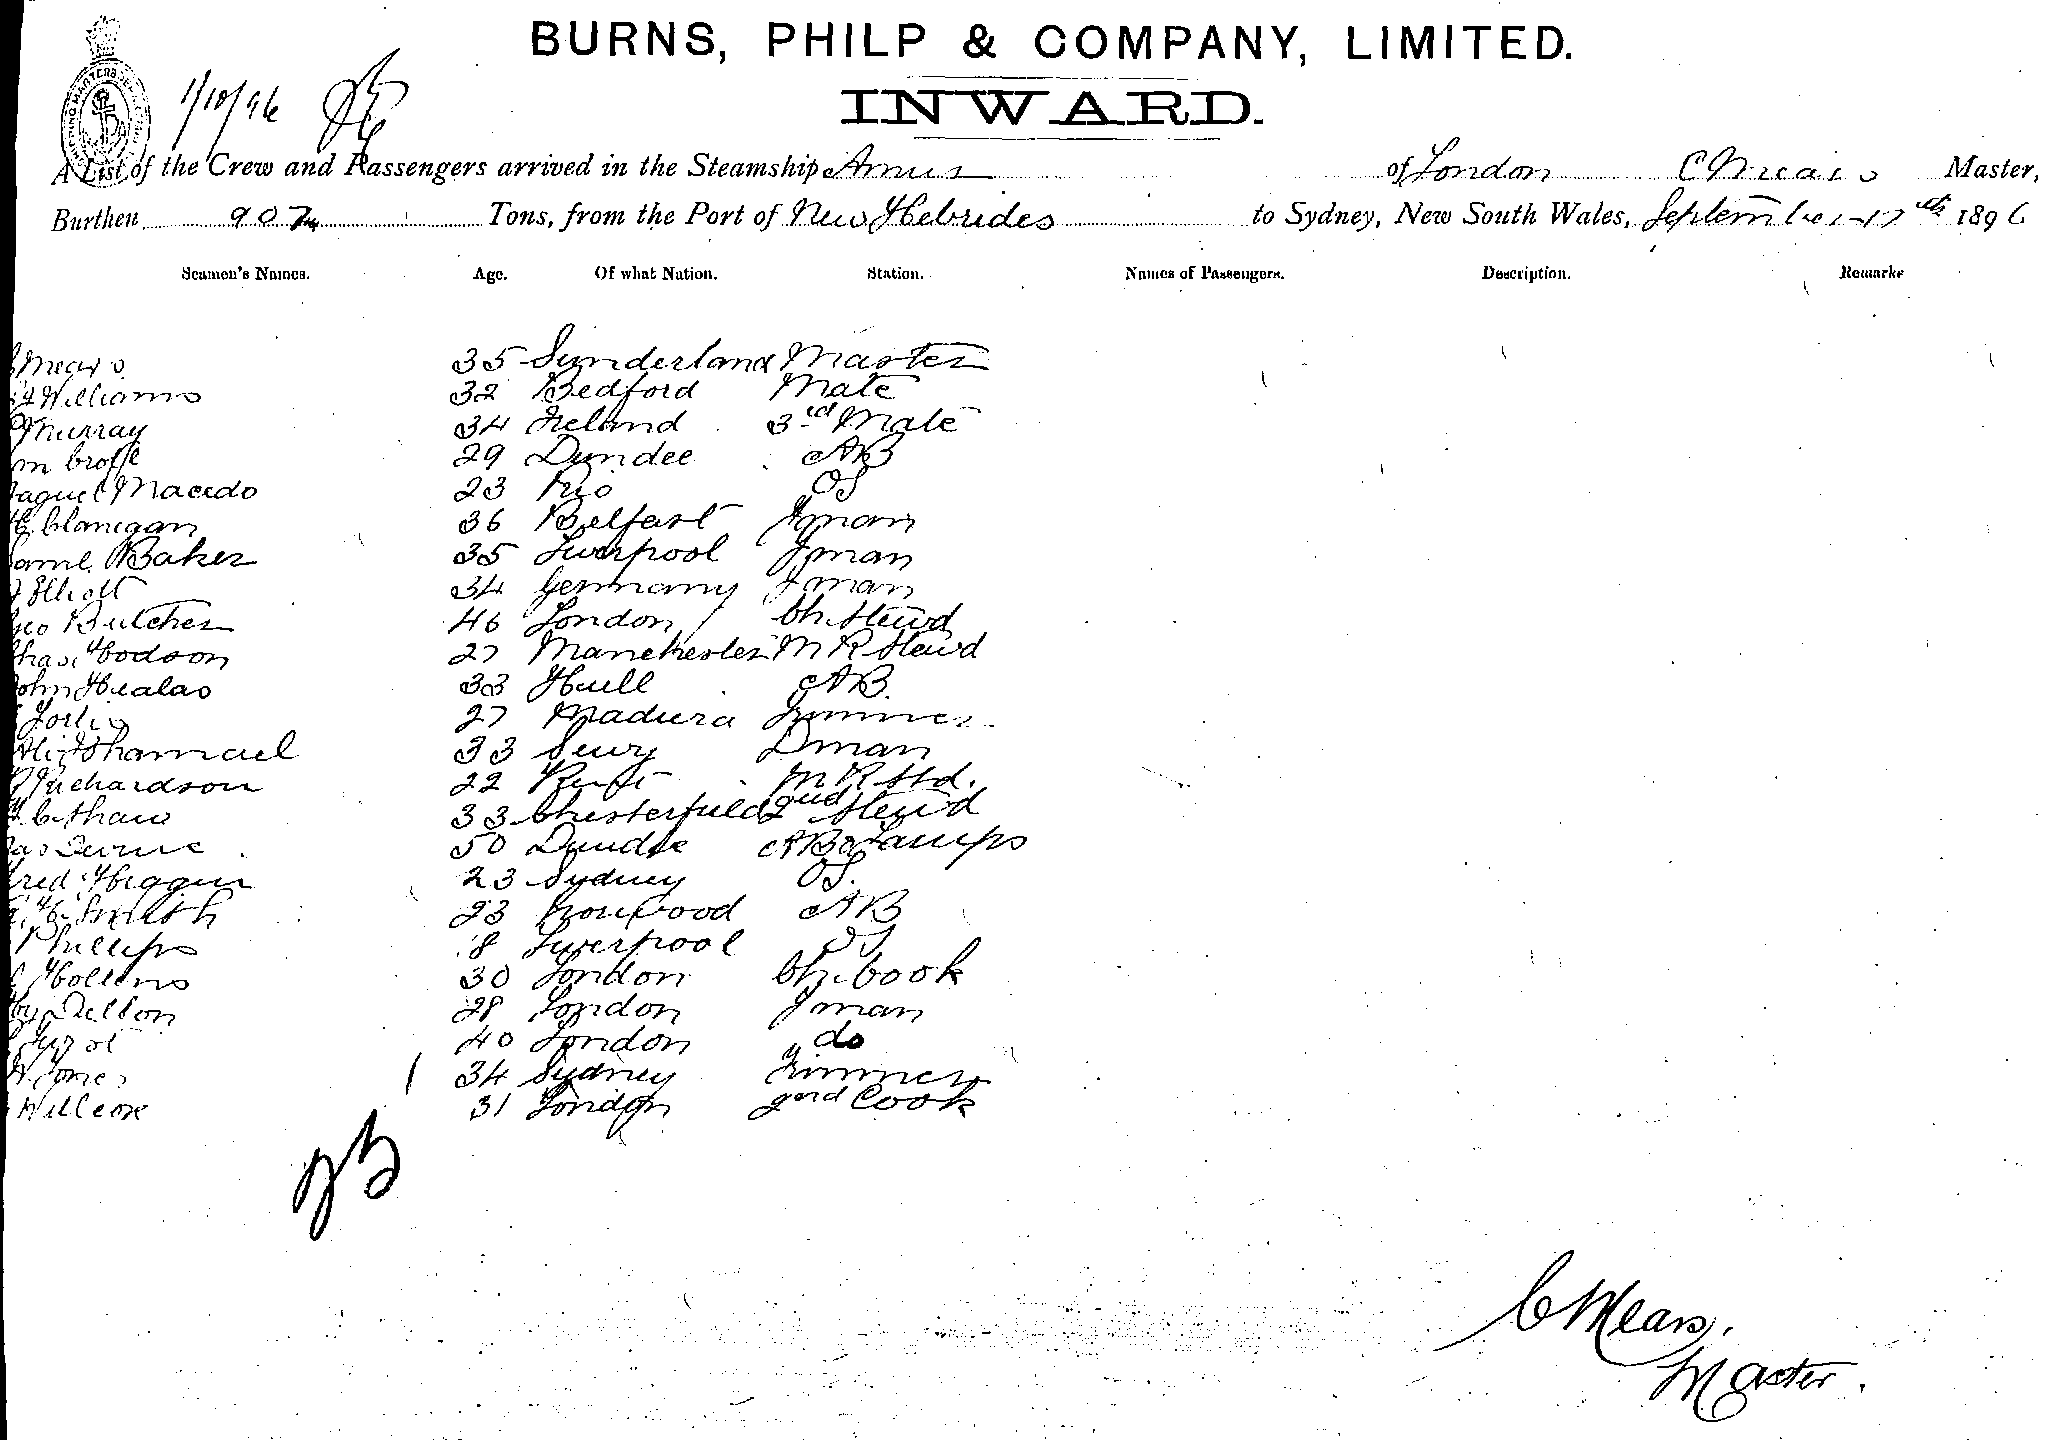 BURNS, PHILP & COMPANY, LIMITED.
INWARD.
1/10/96
A List of the Crew and Passengers arrived in the Steamship of London C Mears Master,
Burthen 907 Tons, from the Port of New Hebrides to Sydney, New South Wales, September 17th 1896
Seamen's Names. Age. Of what Nation. Station. Names of Passengers. Description. Remarks
Mears 35 Sunderland Master
Williams 32 Bedford Mate
Murray 34 Ireland 3rd Mate
29 Dundee AB
Macedo 23 Rio OS
Clanigan 36 Belfast Fman
Baker 35 Liverpool Fman
Elliott 34 Germany Fman
Butcher 46 London Ch. Stewd
Hodson 27 Manchester M R Stewd
John Healas 33 Hull AB.
27 Madiera Trimmer
33 Dman
Richardson 22 Kent M R Std.
33 Chesterfield 2nd Stewd
50 Dundee AB & Lamps
23 Sydney OS.
Smith 23 Norwood AB
Phillips 18 Liverpool OS
Hollins 30 London Ch. Cook
28 London Fman
40 London do
Jones 34 Sydney Trimmer
Willcox 31 London 2nd Cook
C Mears.
Master.